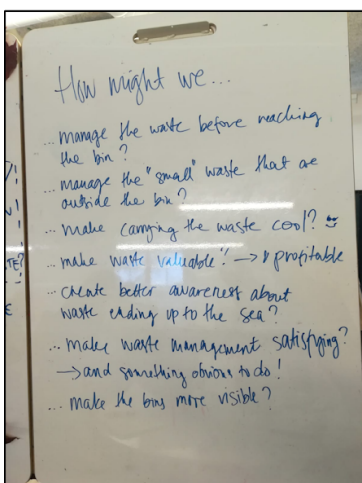 How might we...
... manage the waste before reaching
the bin?
... manage the "small" waste that are
outside the bin?
... make carrying the waste cool?
... make waste valuable? → profitable
... create better awareness about
waste ending up to the sea?
... make waste management satisfying?
→ and something obvious to do!
... make the bins more visible?